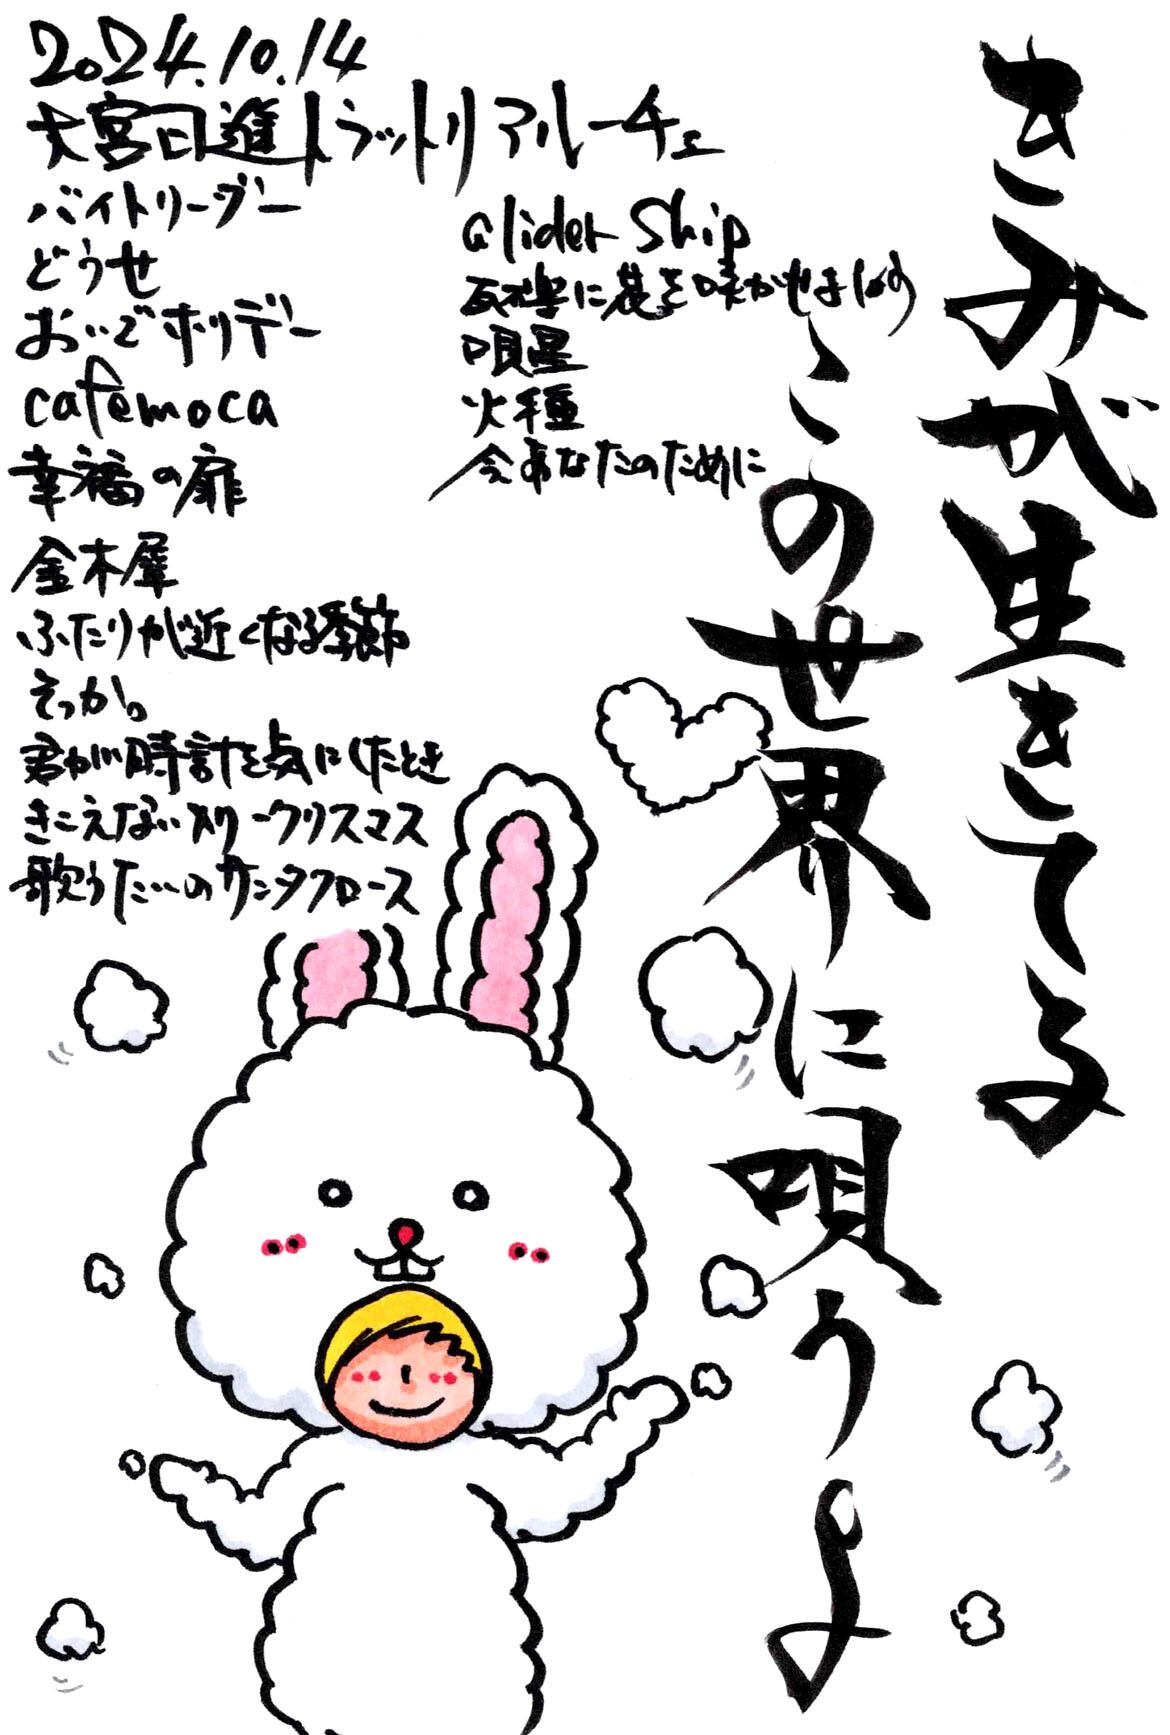 2024.10.14
大宮日進トラットリアルーチェ
バイトリーダー
どうせ
おいでホリデー
cafemoca
幸福の扉
金木犀
ふたりが近くなる季節
そっか。
君が時計を気にしたとき
きこえないメリークリスマス
歌うたいのサンタクロース
Glider Ship
瓦礫に花を咲かせましょう
唄星
火種
今あなたのために
きみが生きてる
この世界に唄うよ